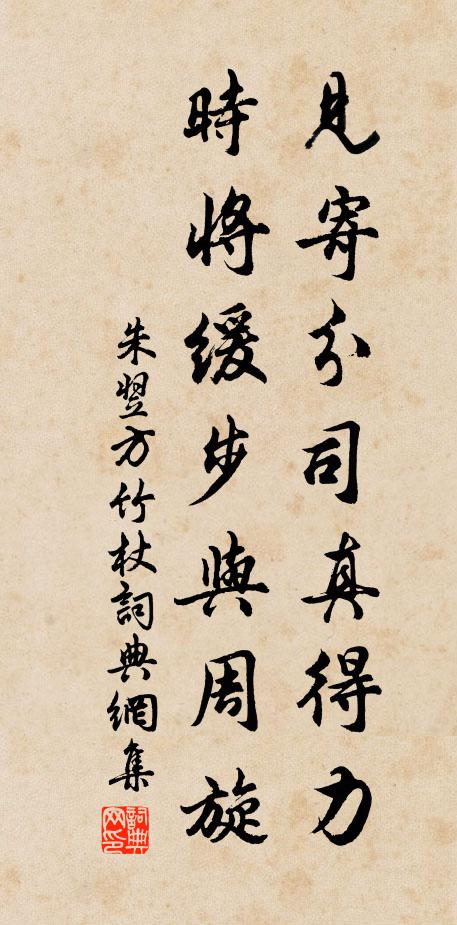 見寄分司真得力
時將緩步與周旋
朱翌方竹杖詞典網集
詞典網印